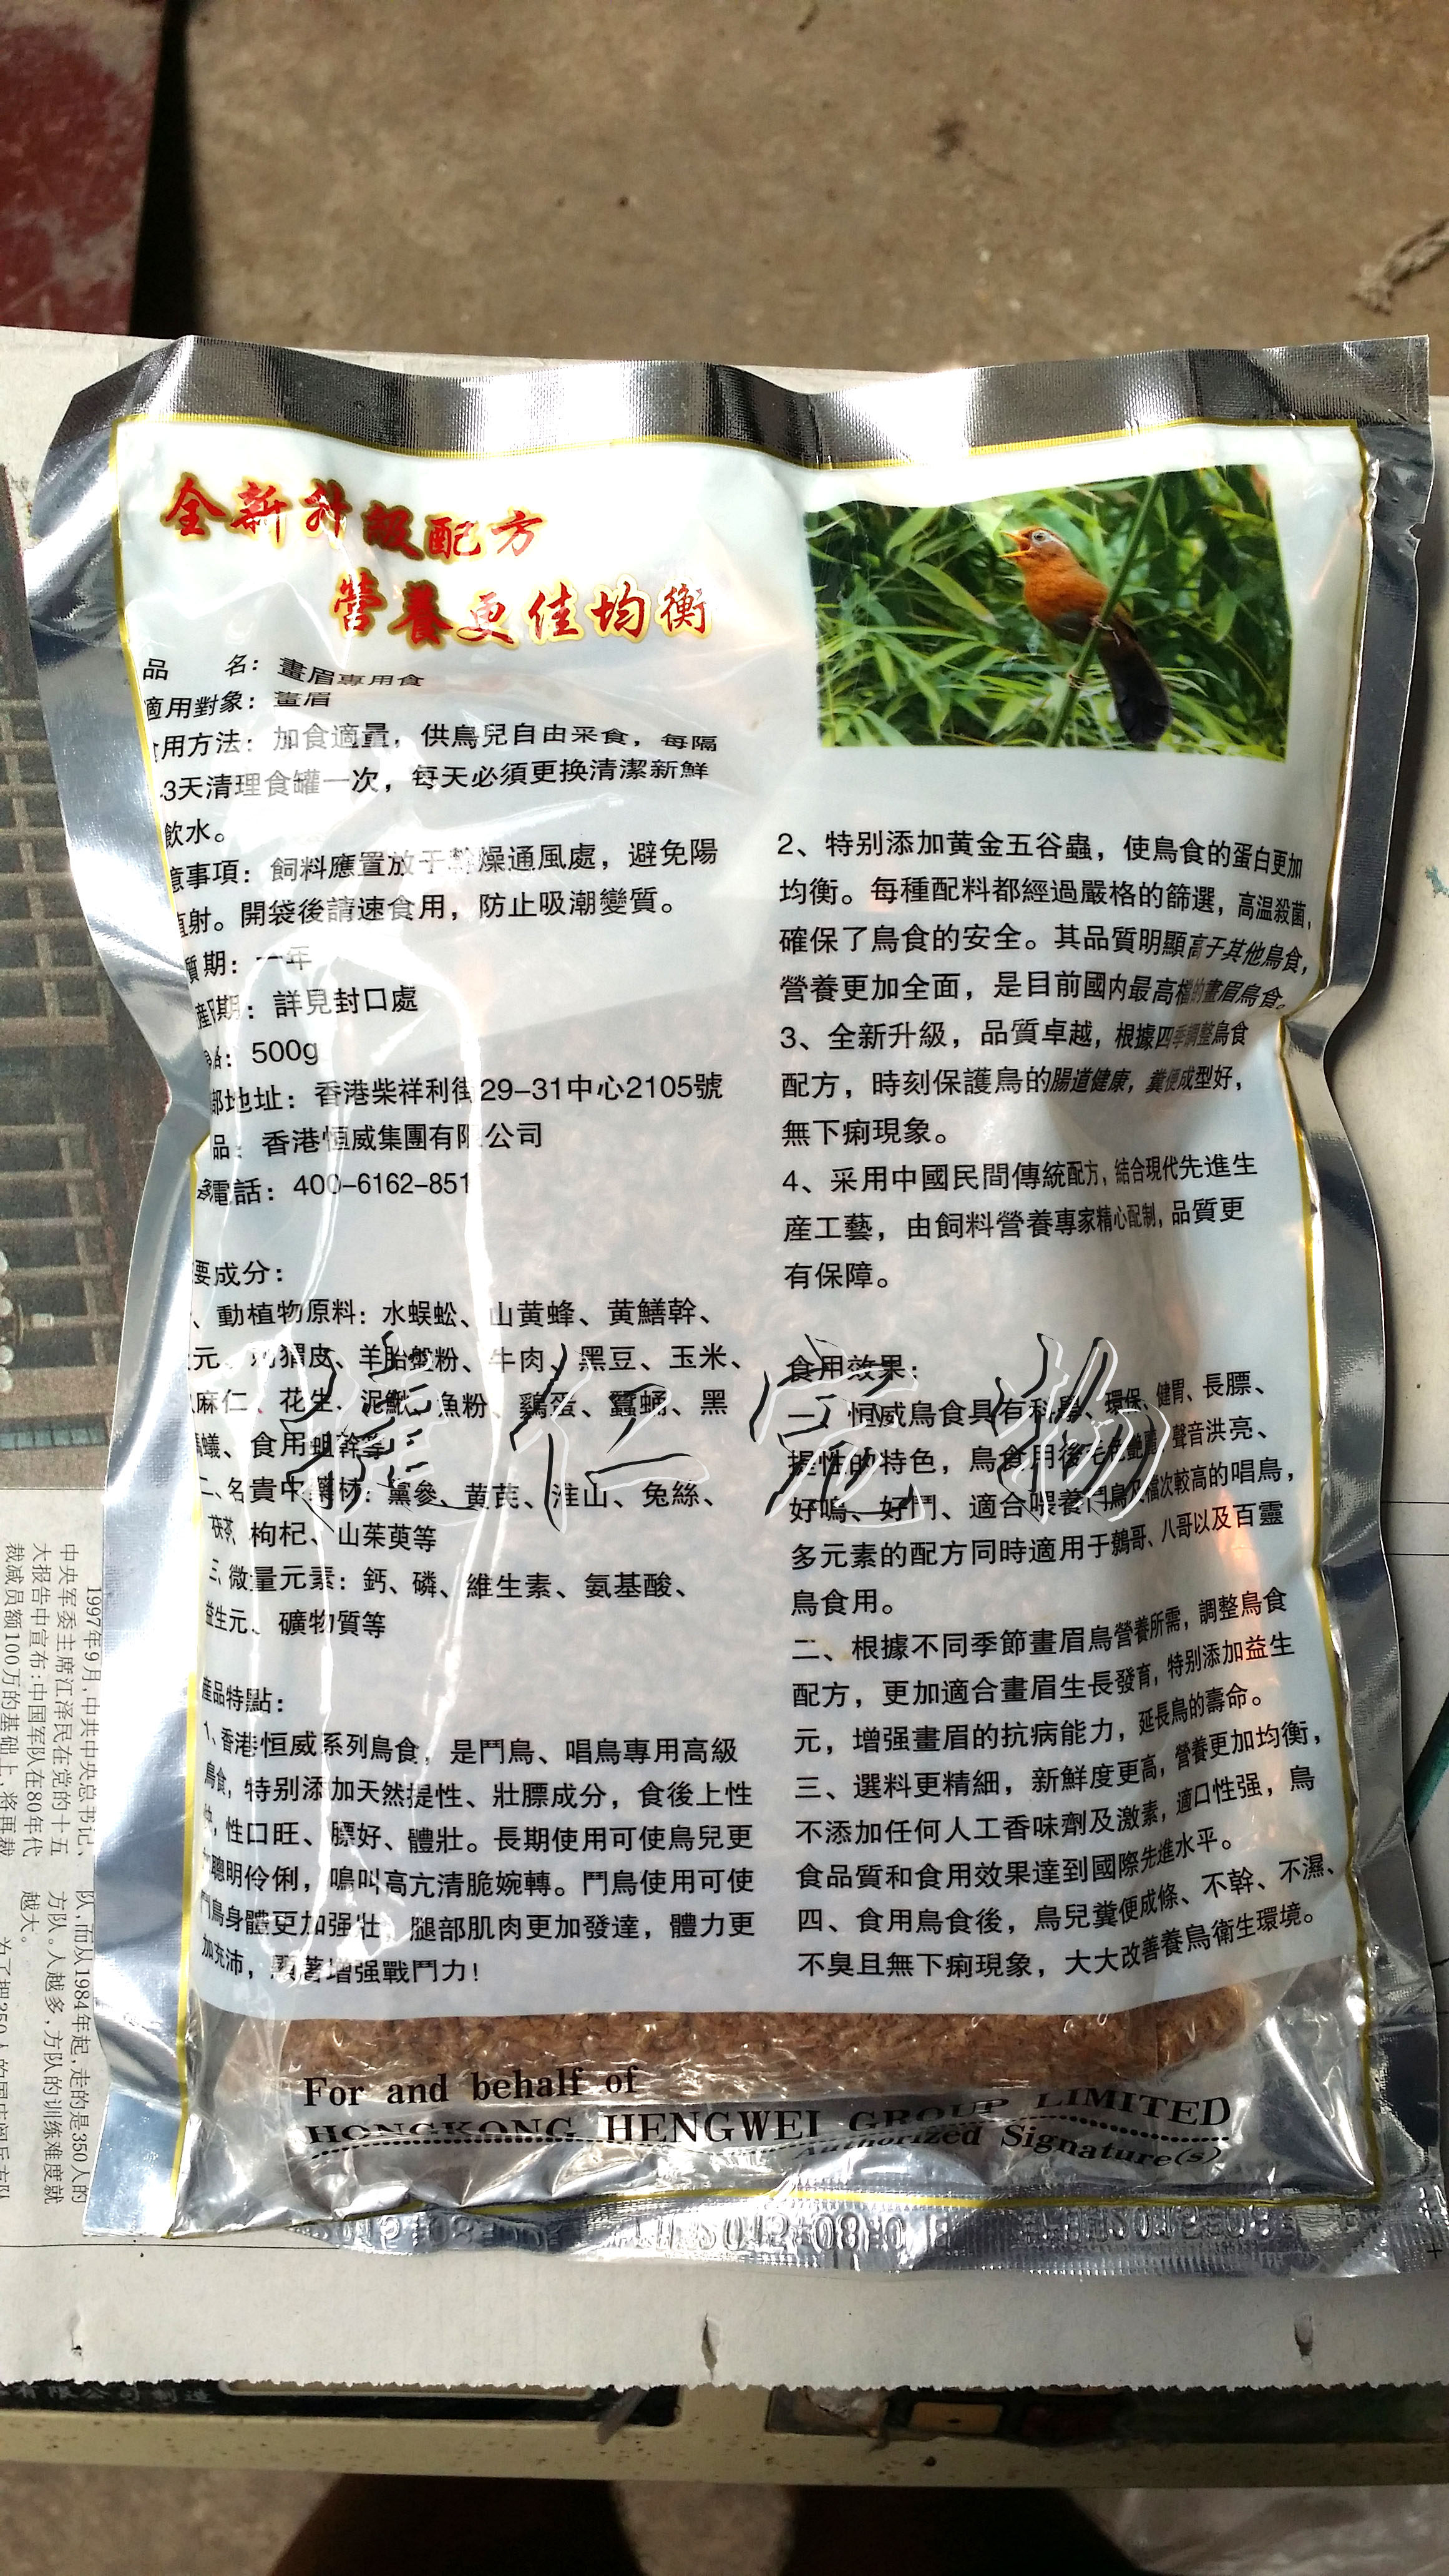 全新升級配方
營養更佳均衡
品 名：畫眉專用食
適用對象：畫眉
用方法：加食適量，供鳥兒自由采食，每隔
3天清理食罐一次，每天必須更换清潔新鮮
飲水。
意事項：飼料應置放于 燥通風處，避免陽
直射。開袋後請速食用，防止吸潮變質。
質期：一年
産日期：詳見封口處
格：500g
部地址：香港柴祥利街29-31中心2105號
品：香港恒威集團有限公司
電話：400-6162-851
要成分：
、動植物原料：水蜈蚣、山黄蜂、黄鱔幹、
元、 猬皮、羊胎盤粉、牛肉、黑豆、玉米、
麻仁、花生、泥鰍、魚粉、鷄蛋、蠶蛹、黑
螞蟻、食用蛆幹等
二、名貴中藥材：黨參、黄芪、淮山、兔絲、
茯苓、枸杞、山茱萸等
三、微量元素：鈣、磷、維生素、氨基酸、
益生元、礦物質等
産品特點：
1、香港恒威系列鳥食，是鬥鳥、唱鳥專用高級
鳥食，特别添加天然提性、壯膘成分，食後上性
快，性口旺、膘好、體壯。長期使用可使鳥兒更
加聰明伶俐，鳴叫高亢清脆婉轉。鬥鳥使用可使
鬥鳥身體更加强壯，腿部肌肉更加發達，體力更
加充沛，顯著增强戰鬥力！
2、特别添加黄金五谷蟲，使鳥食的蛋白更加
均衡。每種配料都經過嚴格的篩選，高温殺菌，
確保了鳥食的安全。其品質明顯高于其他鳥食，
營養更加全面，是目前國内最高檔的畫眉鳥食。
3、全新升級，品質卓越，根據四季調整鳥食
配方，時刻保護鳥的腸道健康，糞便成型好，
無下痢現象。
4、采用中國民間傳統配方，結合現代先進生
産工藝，由飼料營養專家精心配制，品質更
有保障。
食用效果：
一、恒威鳥食具有科學、環保、健胃、長膘、
提性的特色，鳥食用後毛色艷麗，聲音洪亮、
好鳴、好鬥、適合喂養鬥鳥及檔次較高的唱鳥，
多元素的配方同時適用于鷯哥、八哥以及百靈
鳥食用。
二、根據不同季節畫眉鳥營養所需，調整鳥食
配方，更加適合畫眉生長發育，特别添加益生
元，增强畫眉的抗病能力，延長鳥的壽命。
三、選料更精細，新鮮度更高，營養更加均衡，
不添加任何人工香味劑及激素，適口性强，鳥
食品質和食用效果達到國際先進水平。
四、食用鳥食後，鳥兒糞便成條、不幹、不濕、
不臭且無下痢現象，大大改善養鳥衛生環境。
For and behalf of
HONGKONG HENGWEI GROUP LIMITED
Authorized Signature(s)
仁宠物
1997年9月，中共中央总书记、
中央军委主席江泽民在党的十五
大报告中宣布：中国军队在80年代
裁减员额100万的基础上，将再裁
队，而从1984年起，走的是350人的
方队。人越多，方队的训练难度就
越大。
有限公司制造